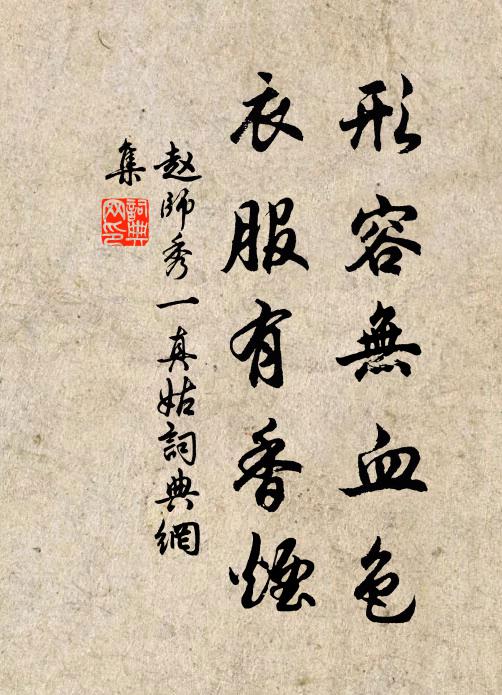 形容無血色
衣服有香煙
赵師秀一真姑詞典網
集
詞典
网印